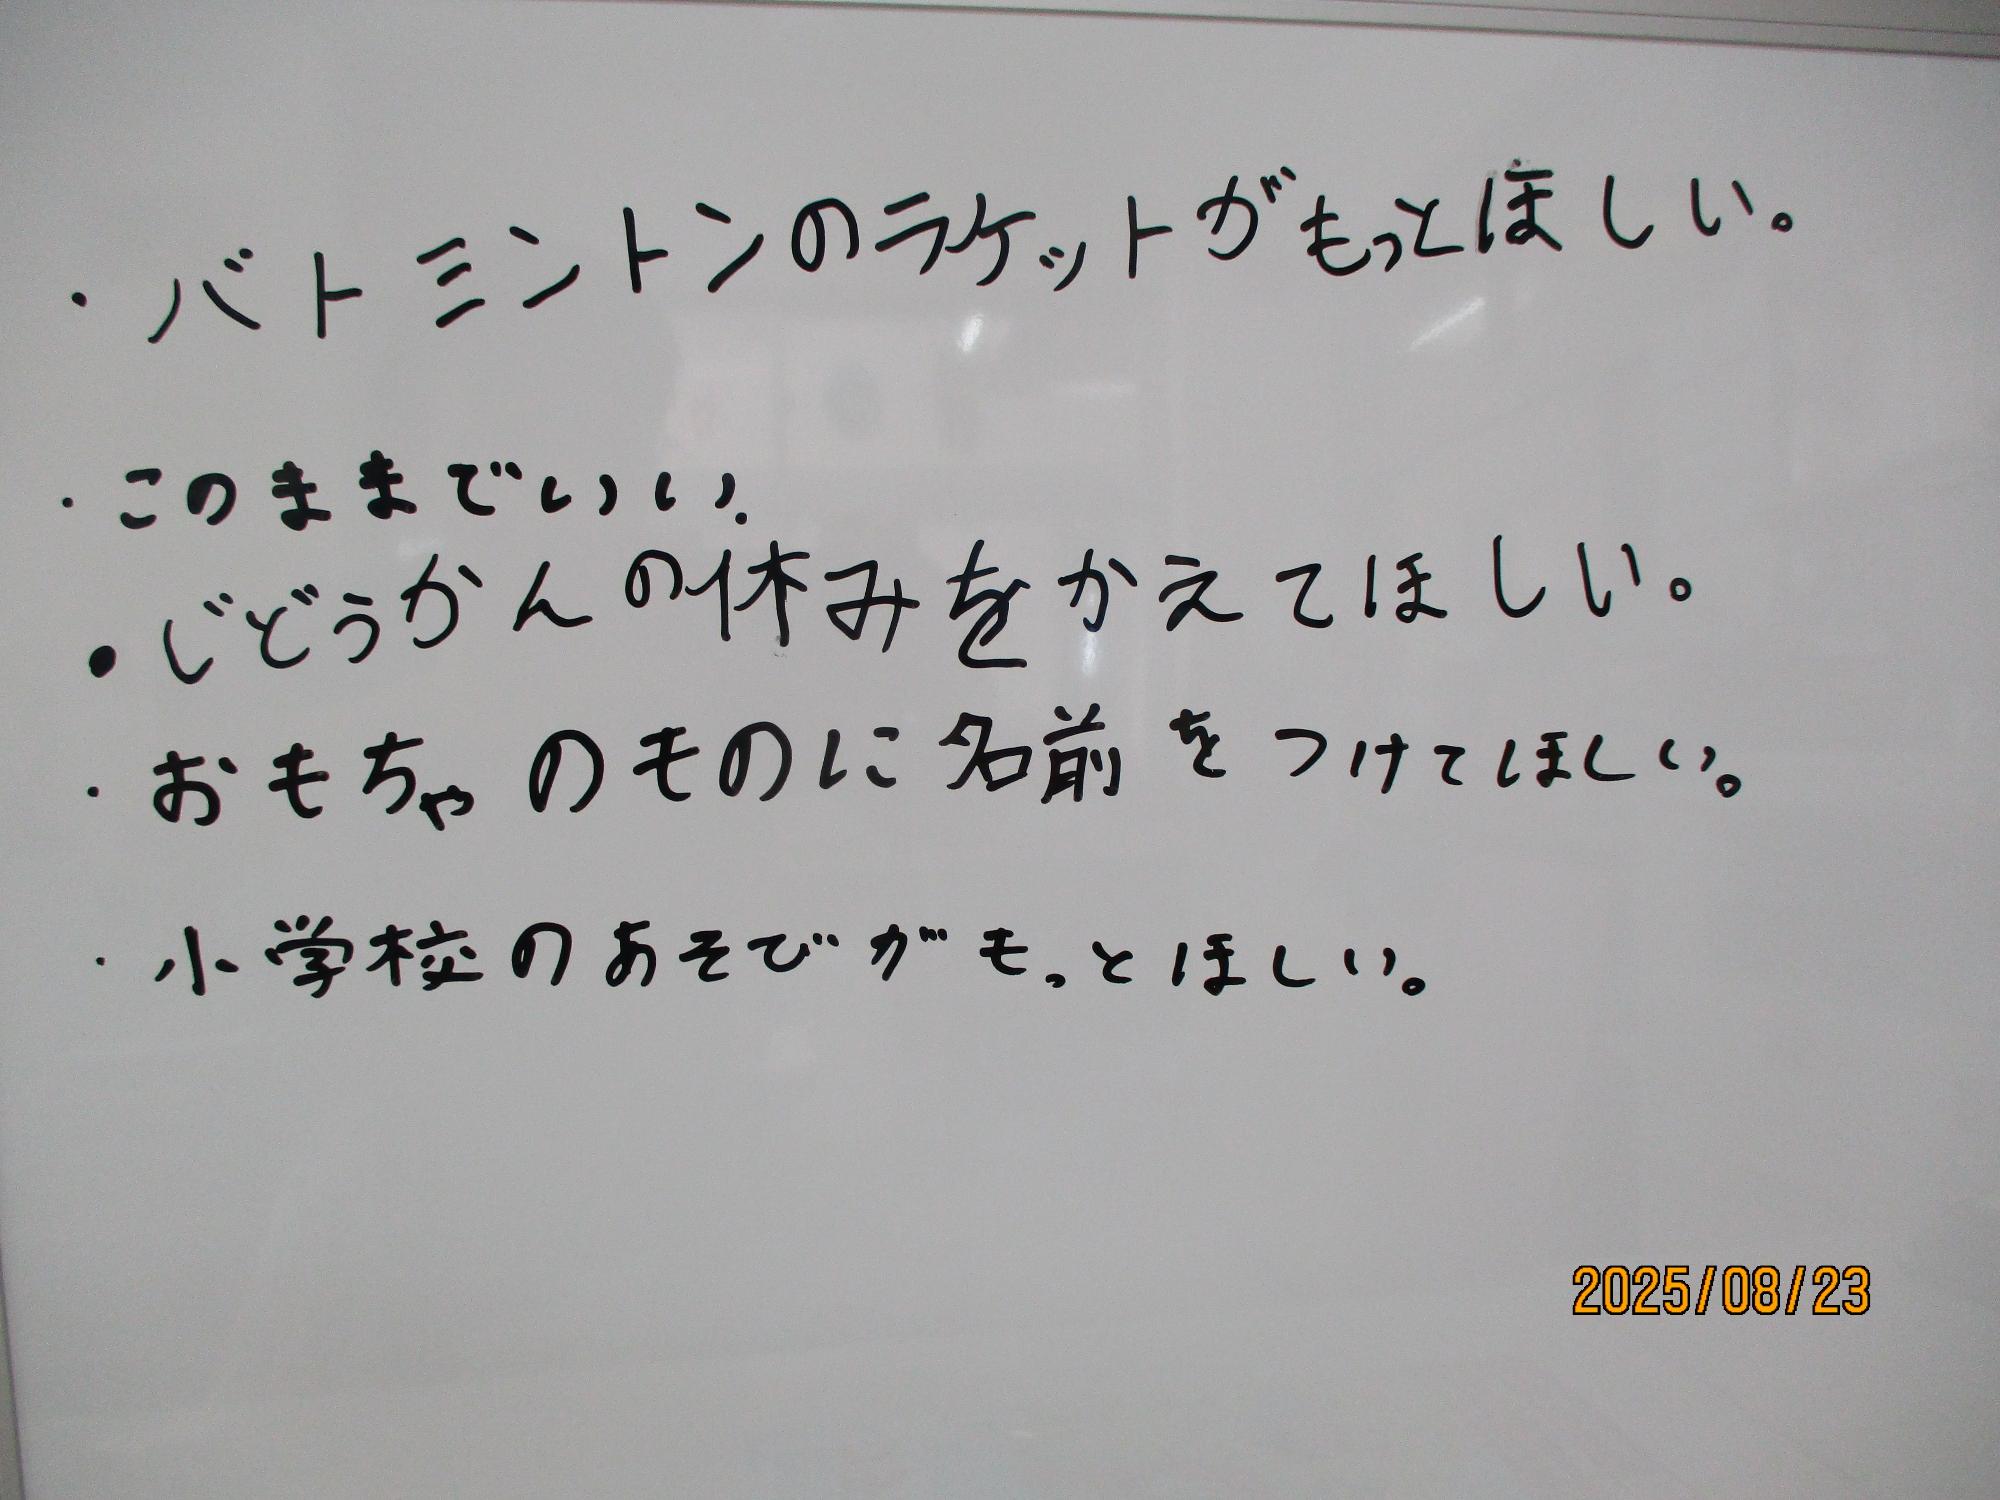 ・バトミントンのラケットがもっとほしい。
・このままでいい.
・じどうかんの休みをかえてほしい。
・おもちゃのものに名前をつけてほしい。
・小学校のあそびがもっとほしい。
2025/08/23